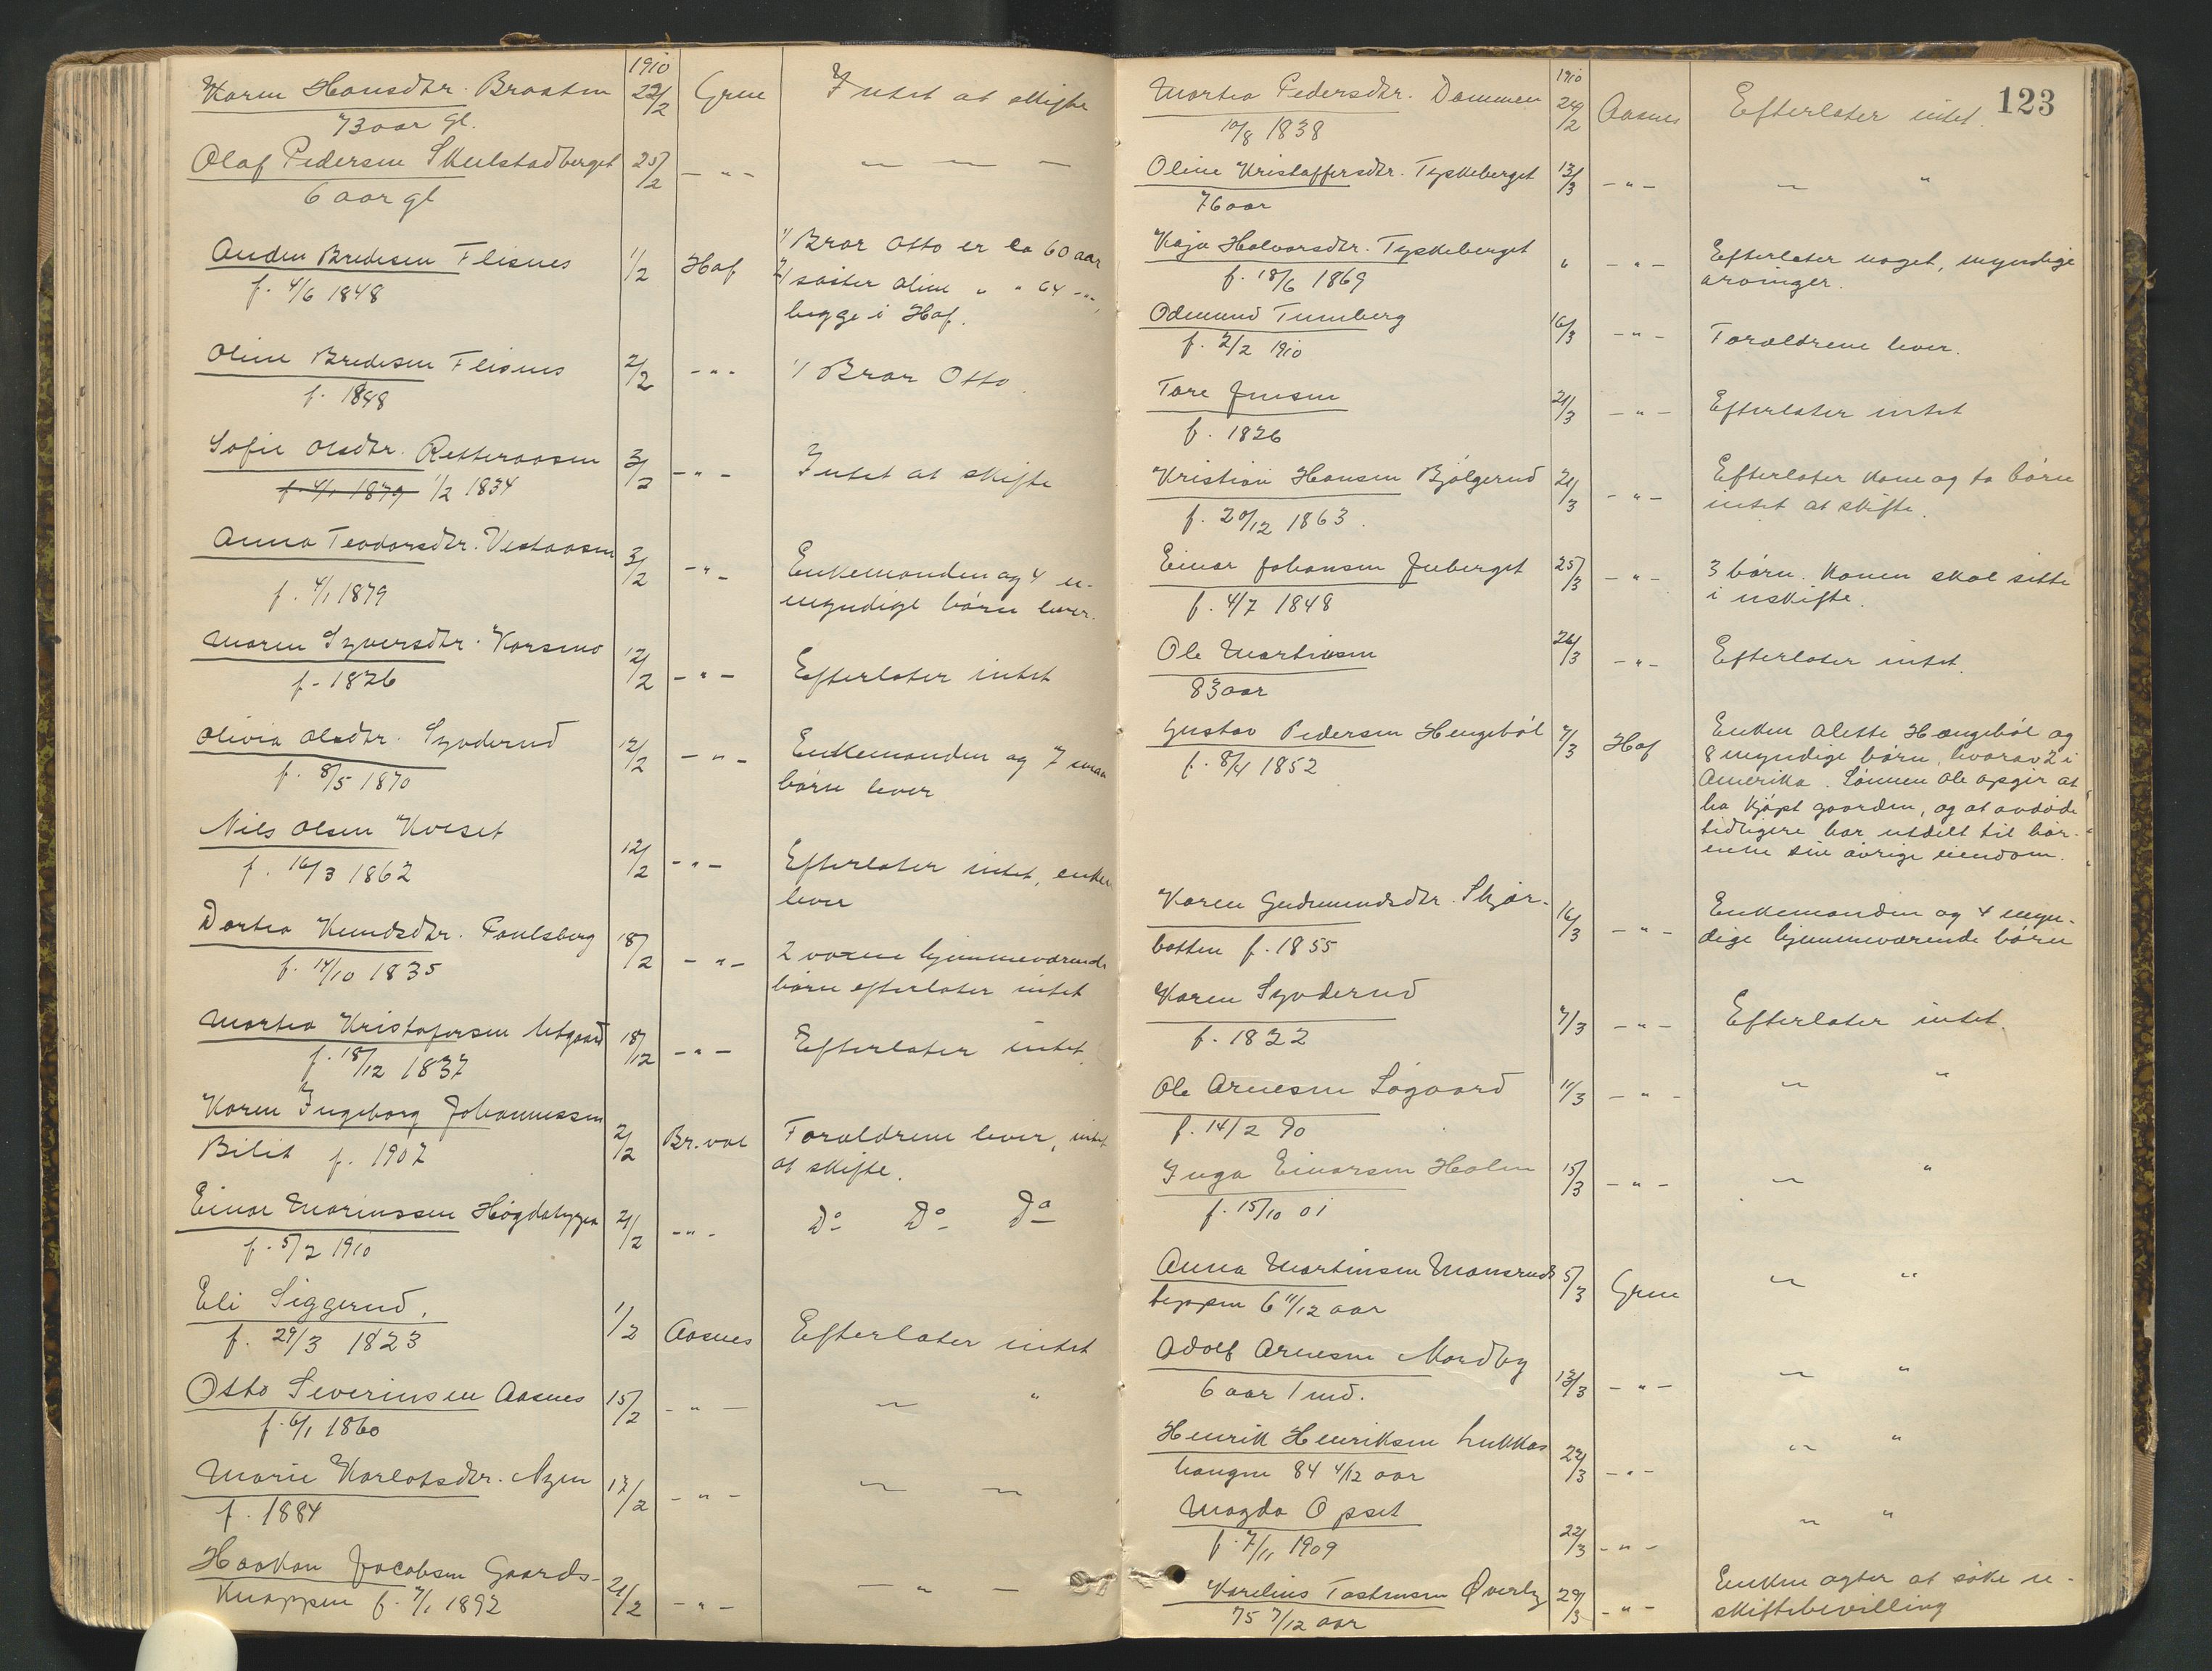 1910
Karen Hansdtr. Braaten 22/2 Grue Intet at skifte
73 aar gl.
Olaf Pedersen Skulstadberget 25/2 — " — — — —
6 aar gl
Anders Bredesen Flisnes 1/2 Hof 1/ Bror Otto er ca 60 aar
f. 4/6 1848 2/ søster Oline " " 64 -"-,
begge i Hof.
Oline Bredesen Flisnes 2/2 — " — 1/ Bror Otto.
f. 1848
Sofie Olsdtr. Retteraasen 3/2 — " — Intet at skifte
f. 4/1 1879 1/2 1834
Anna Teodorsdtr. Vestaasen 3/2 — " — Enkemanden og 4 u-
f. 4/1 1879 myndige børn lever.
Maren Syversdtr. Korsmo 12/2 — " — Efterlater intet
f. 1826
Olivia Olsdtr. Syverud 12/2 — " — Enkemanden og 7 smaa
f. 8/5 1870 børn lever
Nils Olsen Kveset 12/2 — " — Efterlater intet, enken
f. 16/3 1862 lever
Dortea Knudsdtr. Poulsberg 18/2 — " — 2 voxne hjemmeværende
f. 14/10 1835 børn efterlater intet
Martea Kristofersen Utgaard 18/12 — " — Efterlater intet.
f. 18/12 1837
Karen Ingeborg Johannessen 2/2 Br.vol Forældrene lever, intet
Bilit f. 1907 at skifte.
Einar Marinussen Høgdatyppen 21/2 — " — Do Do Do
f. 5/2 1910
Eli Siggerud. 1/2 Aasnes Efterlater intet
f. 29/3 1823
Otto Severinsen Aasnes 15/2 — " — — "
f. 6/1 1860
Marie Karlotsdtr. Nyen 17/2 — " — — —
f. 1884
Haakon Jacobsen Gaards- 21/2 — " — — " —
knappen f. 7/1 1892
123
1910
Martea Pedersdtr. Dammen 24/2 Aasnes Efterlater intet
10/8 1838
Oline Kristoffersdtr. Tyskeberget 13/3 — " — — "
76 aar
Kaja Halvorsdtr. Tyskeberget " — " — Efterlater noget, myndige
f. 18/6 1869 arvinger.
Odmund Tumberg 16/3 — " — Forældrene lever.
f. 2/2 1910
Tore Jensen 21/3 — " — Efterlater intet
f. 1826
Kristian Hansen Bjølgerud 21/3 — " — Efterlater kone og to børn
f. 20/12 1863. intet at skifte.
Einar Johansen Juberget 25/3 — " — 3 børn. Konen skal sitte
f. 4/7 1848 i uskifte.
Ole Martinsen 26/3 — " — Efterlater intet.
83 aar
Gustav Pedersen Hengebøl 7/3 Hof Enken Alette Hængebøl og
f. 8/4 1852 8 myndige børn, hvorav 2 i
Amerika. Sønnen Ole opgir at
ha kjøpt gaarden, og at avdøde
tidligere har utdelt til bør-
nene sin øvrige eiendom.
Karen Gudmundsdtr. Skjær- 16/3 — " — Enkemanden og 4 myn-
botten f. 1855 dige hjemmeværende børn
Karen Syverud 7/3 — " — Efterlater intet.
f. 1822
Ole Arnesen Søgaard 11/3 — " — — "
f. 14/2 90
Inga Einarsen Holm 15/3 — " — — "
f. 15/10 01
Anna Martinsen Monsrud- 5/3 Grue — "
teppen 6 11/12 aar
Adolf Arnesen Nordby 13/3 — " — — "
6 aar 1 md.
Henrik Henriksen Lukkas- 22/3 — " — — "
haugen 84 4/12 aar
Magda Opset 22/3 — " — — "
f. 7/11 1909
Karelius Tostensen Øverby 29/3 — " — Enken agter at søke u-
75 7/12 aar skiftebevilling